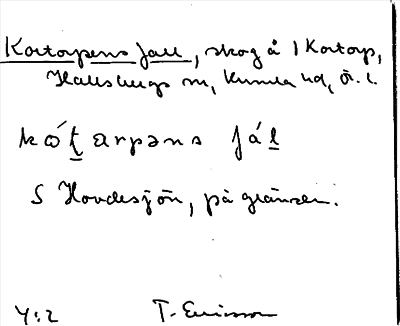 Kortorpens Jall, skog å 1 Kortorp,
Hallsbergs sn, Kumla hd, Ö. l.
kó̤ṯarpəns jáḻ
S Hovdesjön, på gränsen.
4:2 T. Ericsson